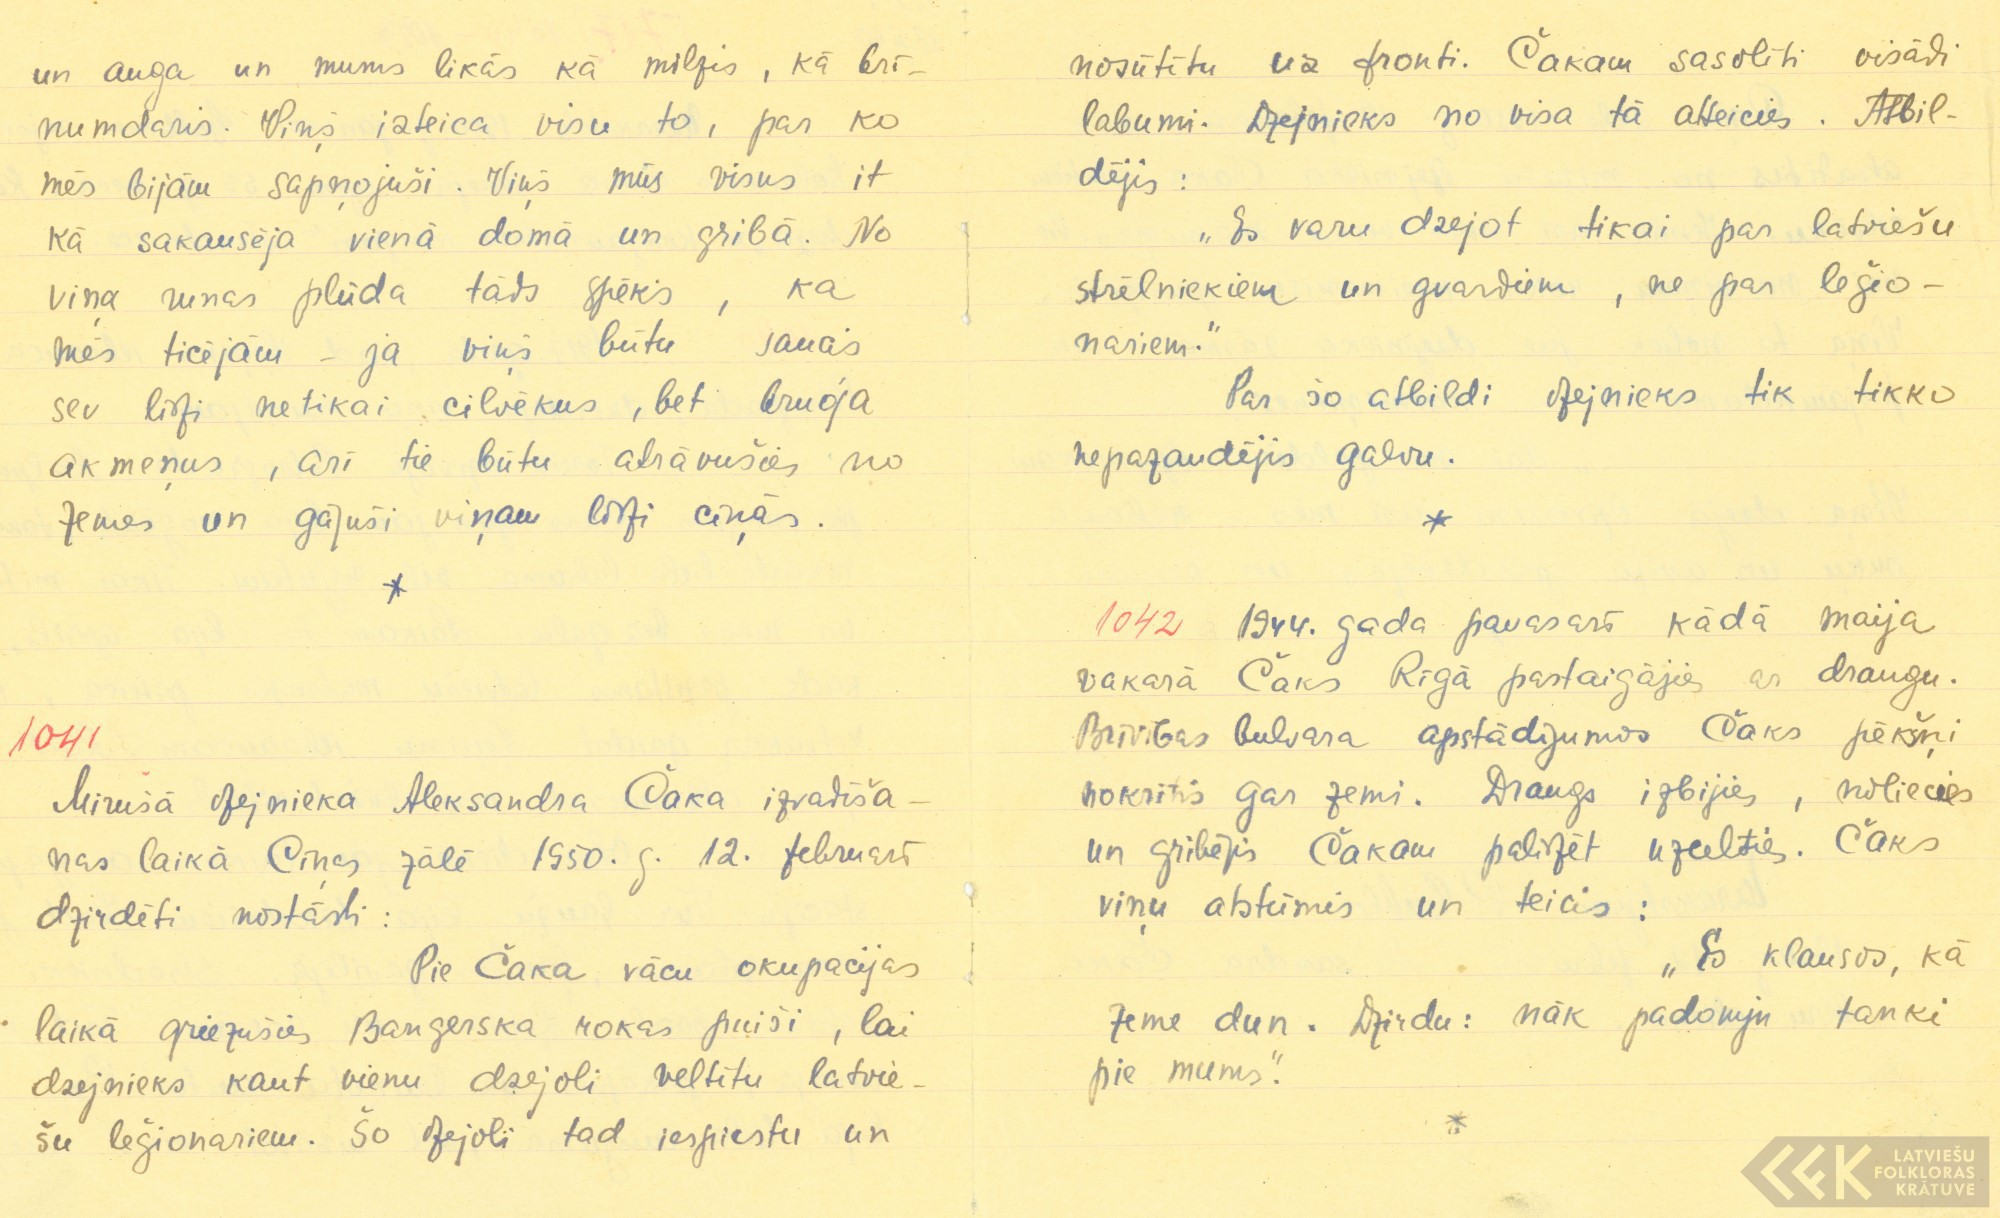 un auga un mums likās kā milzis, kā brī-
numdaris. Viņš izteica visu to, par ko
mēs bijām sapņojuši. Viņš mūs visus it
kā sakausēja vienā domā un gribā. No
viņa runas plūda tāds spēks, ka
mēs ticējām - ja viņš būtu saucis
sev līdzi netikai cilvēkus, bet bruģa
akmeņus, arī tie būtu atrāvušies no
zemes un gājuši viņam līdzi cīņās.
*
1041
Mirušā dzejnieka Aleksandra Čaka izvadīša-
nas laikā Cīņas zālē 1950. g. 12. februarī
dzirdēti nostāsti:
Pie Čaka vācu okupacijas
laikā griezušies Bangerska rokas puiši, lai
dzejnieks kaut vienu dzejoli veltītu latvie-
šu leģionariem. Šo dzejoli tad iespiestu un
nosūtītu uz fronti. Čakam sasolīti visādi
labumi. Dzejnieks no visa tā atteicies. Atbil-
dējis:
„Es varu dzejot tikai par latviešu
strēlniekiem un gvardiem, ne par leģio-
nariem."
Par šo atbildi dzejnieks tik tikko
nepazaudējis galvu.
*
1042 1944. gada pavasarī kādā maija
vakarā Čaks Rīgā pastaigājies ar draugu.
Brīvības bulvara apstādījumos Čaks pēkšņi
nokritis gar zemi. Draugs izbijies, noliecies
un gribējis Čakam palīdzēt uzcelties. Čaks
viņu atstūmis un teicis:
„Es klausos, kā
zeme dun. Dzirdu: nāk padomju tanki
pie mums".
*
LATVIEŠU
FOLKLORAS
KRĀTUVE